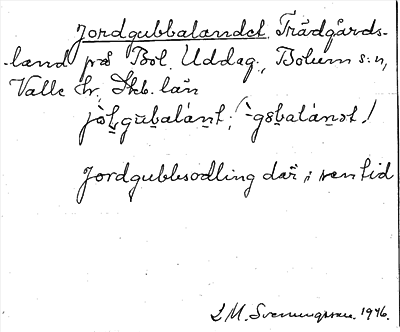 Jordgubbalandet. Trädgårds-
land på Bol. Uddag., Bolum s:n,
Valle hr, Skb. län
Jordgubbsodling där i sen tid
L M. Svenungsson. 1946.